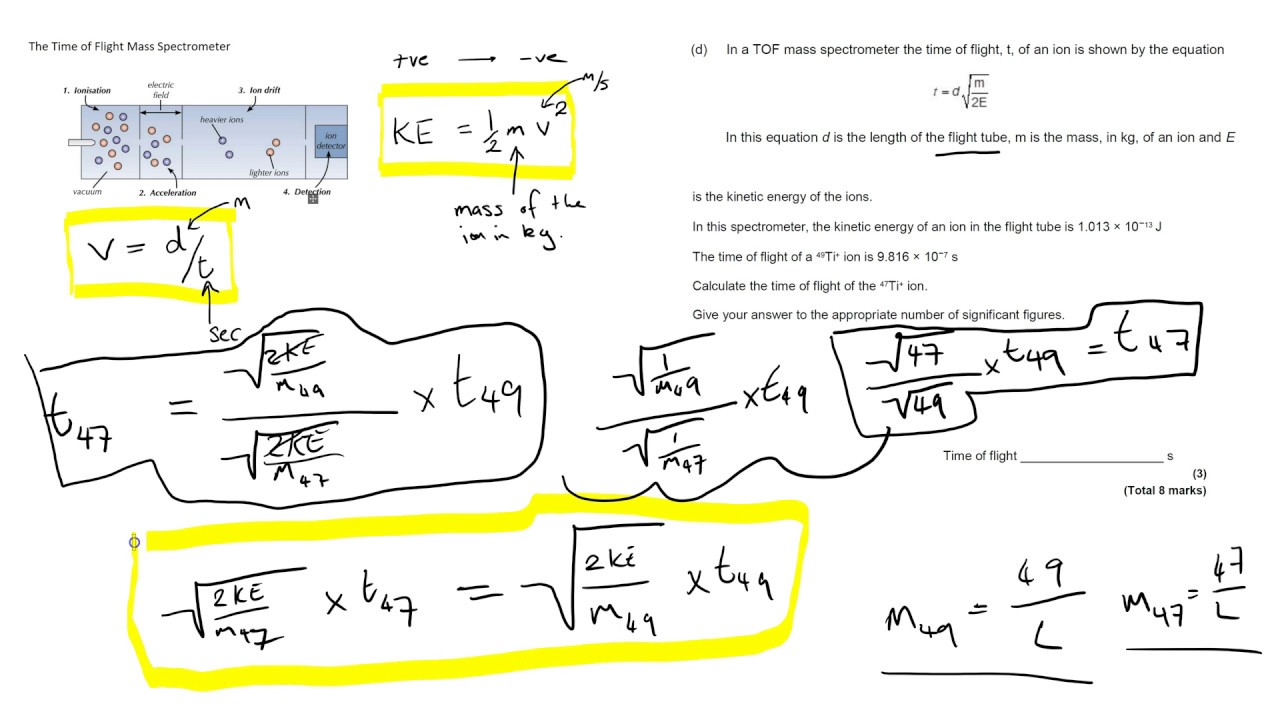 The Time of Flight Mass Spectrometer
1. Ionisation
electric
field
3. Ion drift
heavier ions
ion
detector
lighter ions
vacuum
2. Acceleration
4. Detection
+ve → -ve
m/s
KE = 1/2 m v²
mass of the
ion in kg.
m
v = d/t
sec
(d) In a TOF mass spectrometer the time of flight, t, of an ion is shown by the equation
t = d√(m/2E)
In this equation d is the length of the flight tube, m is the mass, in kg, of an ion and E
is the kinetic energy of the ions.
In this spectrometer, the kinetic energy of an ion in the flight tube is 1.013 × 10⁻¹³ J
The time of flight of a ⁴⁹Ti⁺ ion is 9.816 × 10⁻⁷ s
Calculate the time of flight of the ⁴⁷Ti⁺ ion.
Give your answer to the appropriate number of significant figures.
t₄₇ = √(2KE/m₄₉) / √(2KE/m₄₇) × t₄₉
√(1/m₄₉) / √(1/m₄₇) × t₄₉
√47/√49 × t₄₉ = t₄₇
Time of flight ______________________ s
(3)
(Total 8 marks)
√(2KE/m₄₇) × t₄₇ = √(2KE/m₄₉) × t₄₉
m₄₉ = 49/L
m₄₇ = 47/L